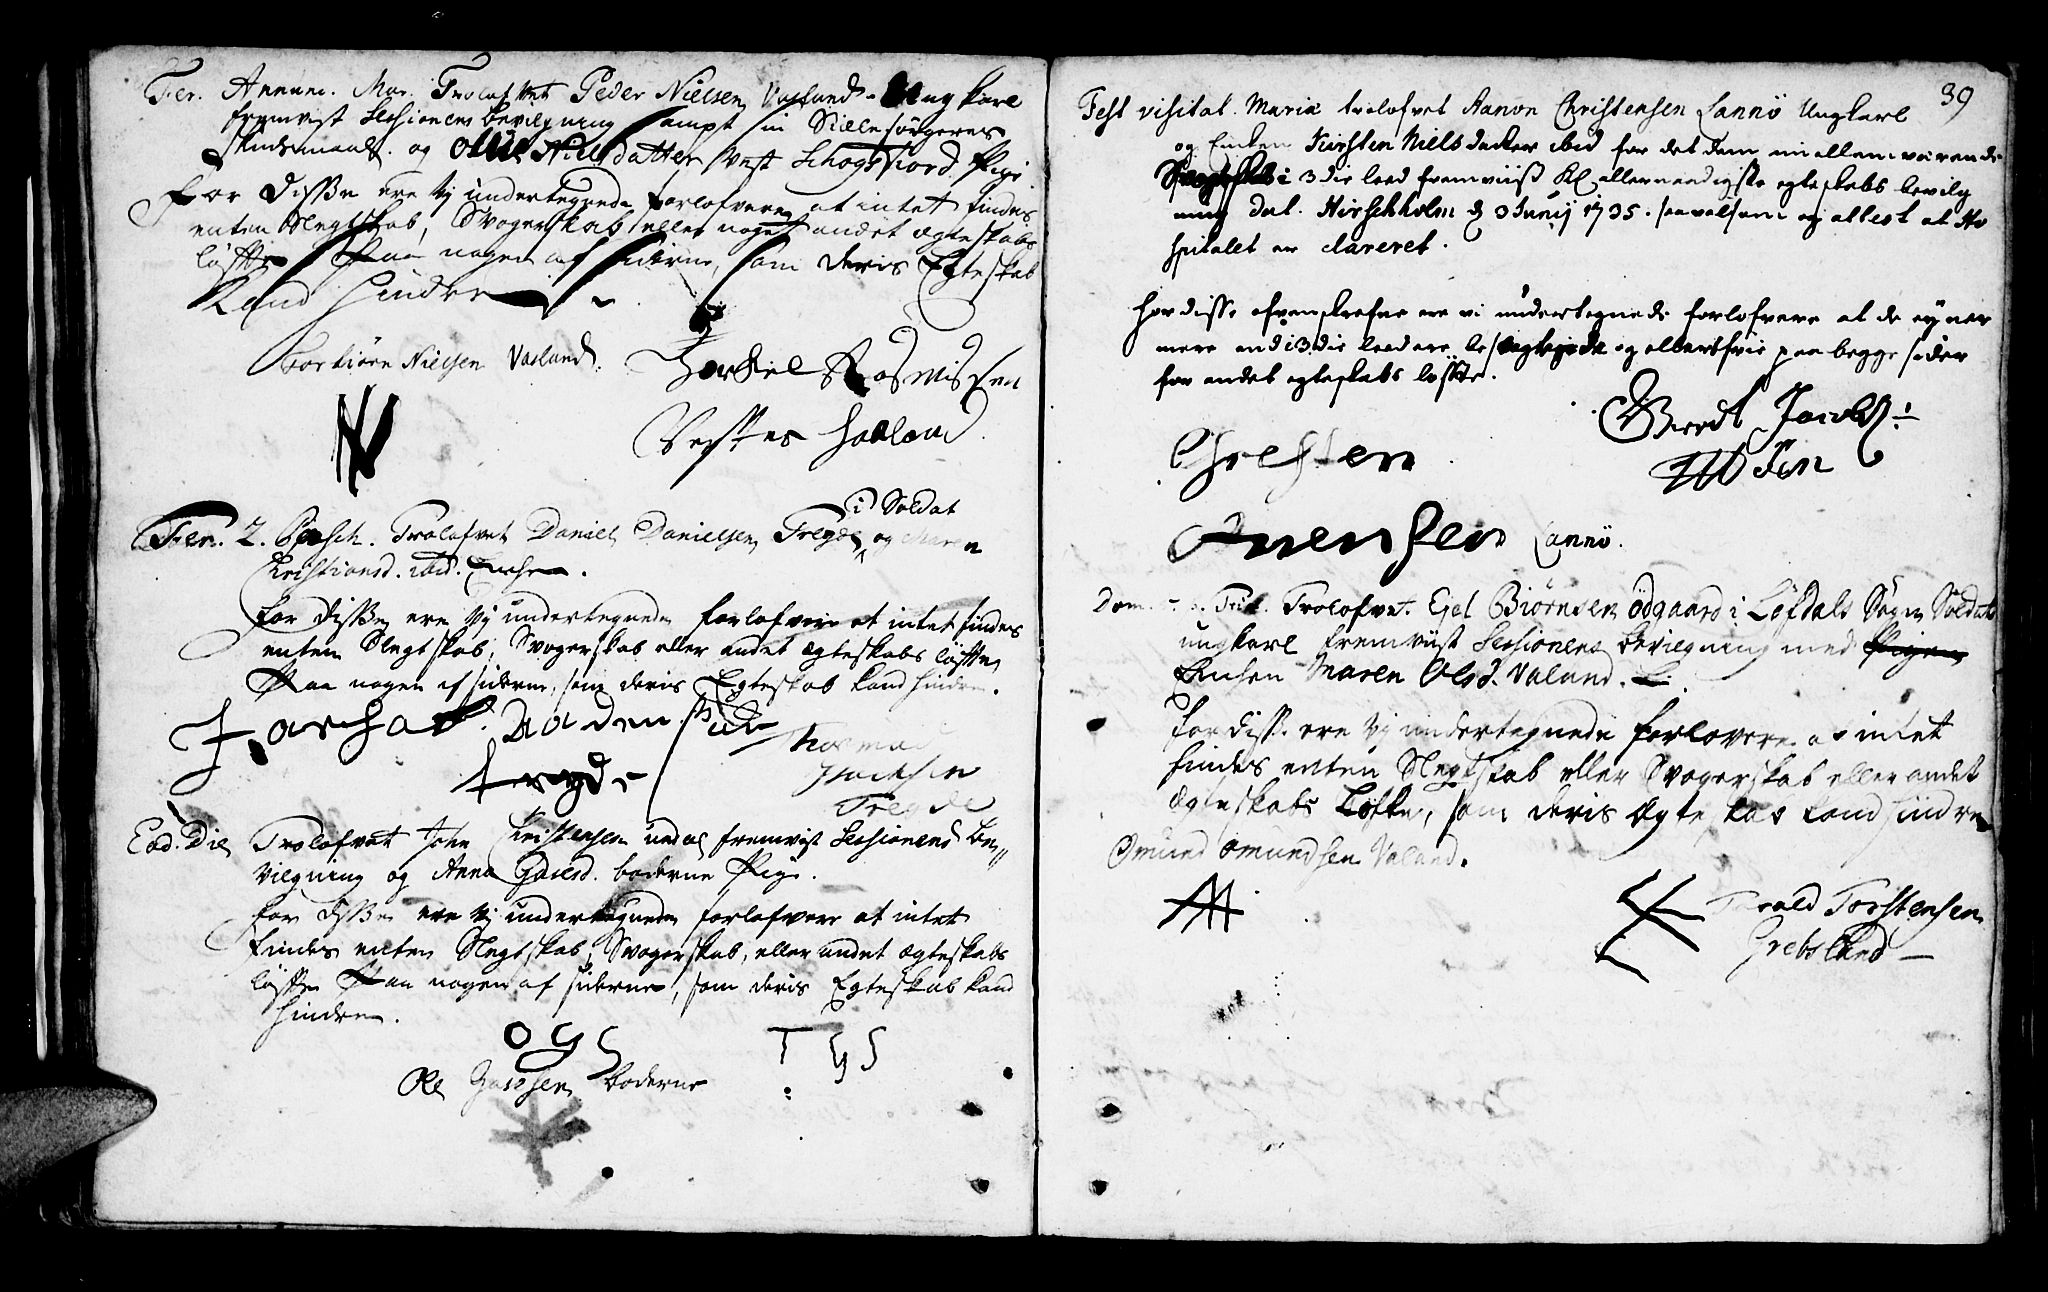 Fer. Annunc. Mar. Trolofvet Peder Nielsen Vasland Ungkarl
fremvist Sessionens bevilgning sampt sin Siælesørgeres
skudsmaal. og Nielsdatter Vest Schogsfiord. Pige
For disse ere vj undertegnede forlofvere at intet findes
enten Slegtskab, Svogerskab eller noget andet Ægteskabs
løffte Paa nogen af siderne, som deris Egteskab
Kand hindre
Torbiörn Nielsen Vasland.
Torkiel Rasmissen
Holland
Fer. 2. Pasch. Trolofvet Daniel Danielsen Tregde i Soldat og Maren
Christiansd. ibid. Enche.
For disse ere vj undertegnede forlofvere at intet findes
enten Slegtskab, Svogerskab eller andet ægteskabs løffte
Paa nogen af siderne, som deris Egteskab kand hindre.
tregde
Isachsen
Tregde
Eod. Die Trolofvet John Christensen fremvist Sessionens be„
vilgning og Anna Gasesd. boderne Pige.
for disse ere vj undertegnede forlofvere at intet
findes enten Slegtskab, Svogerskab, eller andet ægteskabs
løffte Paa nogen af siderne, som deris Egteskab kand
hindre.
O G S
T G S
Ole Gassen boderne
39
Fest visitat. Mariæ trolofvet Aanon Christensen Lannö Ungkarl
og Enken Kirsten Nielsdatter ibid for det dem imellem værende
Svogerskab i 3die leed fremviist Kl. allernaadigste egteskabs bevilg
ning Dat. Hirschholm d 3 Junij 1735. saavelsom og attest at Ho
spitalet er clareret.
For disse ofvenskrefne ere vi undertegnede forlofvere at de ey nær
mere end i 3die leed ere beslegtede og ellers frie paa begge sider
for andet egteskabs løffte.
Beredt Jacobs:
Chresten
Anensen Lannö.
Dom. Trin. Trolofvet. Ejel Biörnsen Ödgaard i Löfdals Sogn Soldat
ungkarl fremviist Sessionens bevilgning med Pigen
Enchen Maren Olsd. Valand.
For disse ere vj undertegnede forlovere at intet
findes enten Slegtskab eller Svogerskab eller andet
Ægteskabs Løfte, som deris Ægteskab kand hindre
Omund Omundsen Valand.
Tarald Torstensen
Grebsland